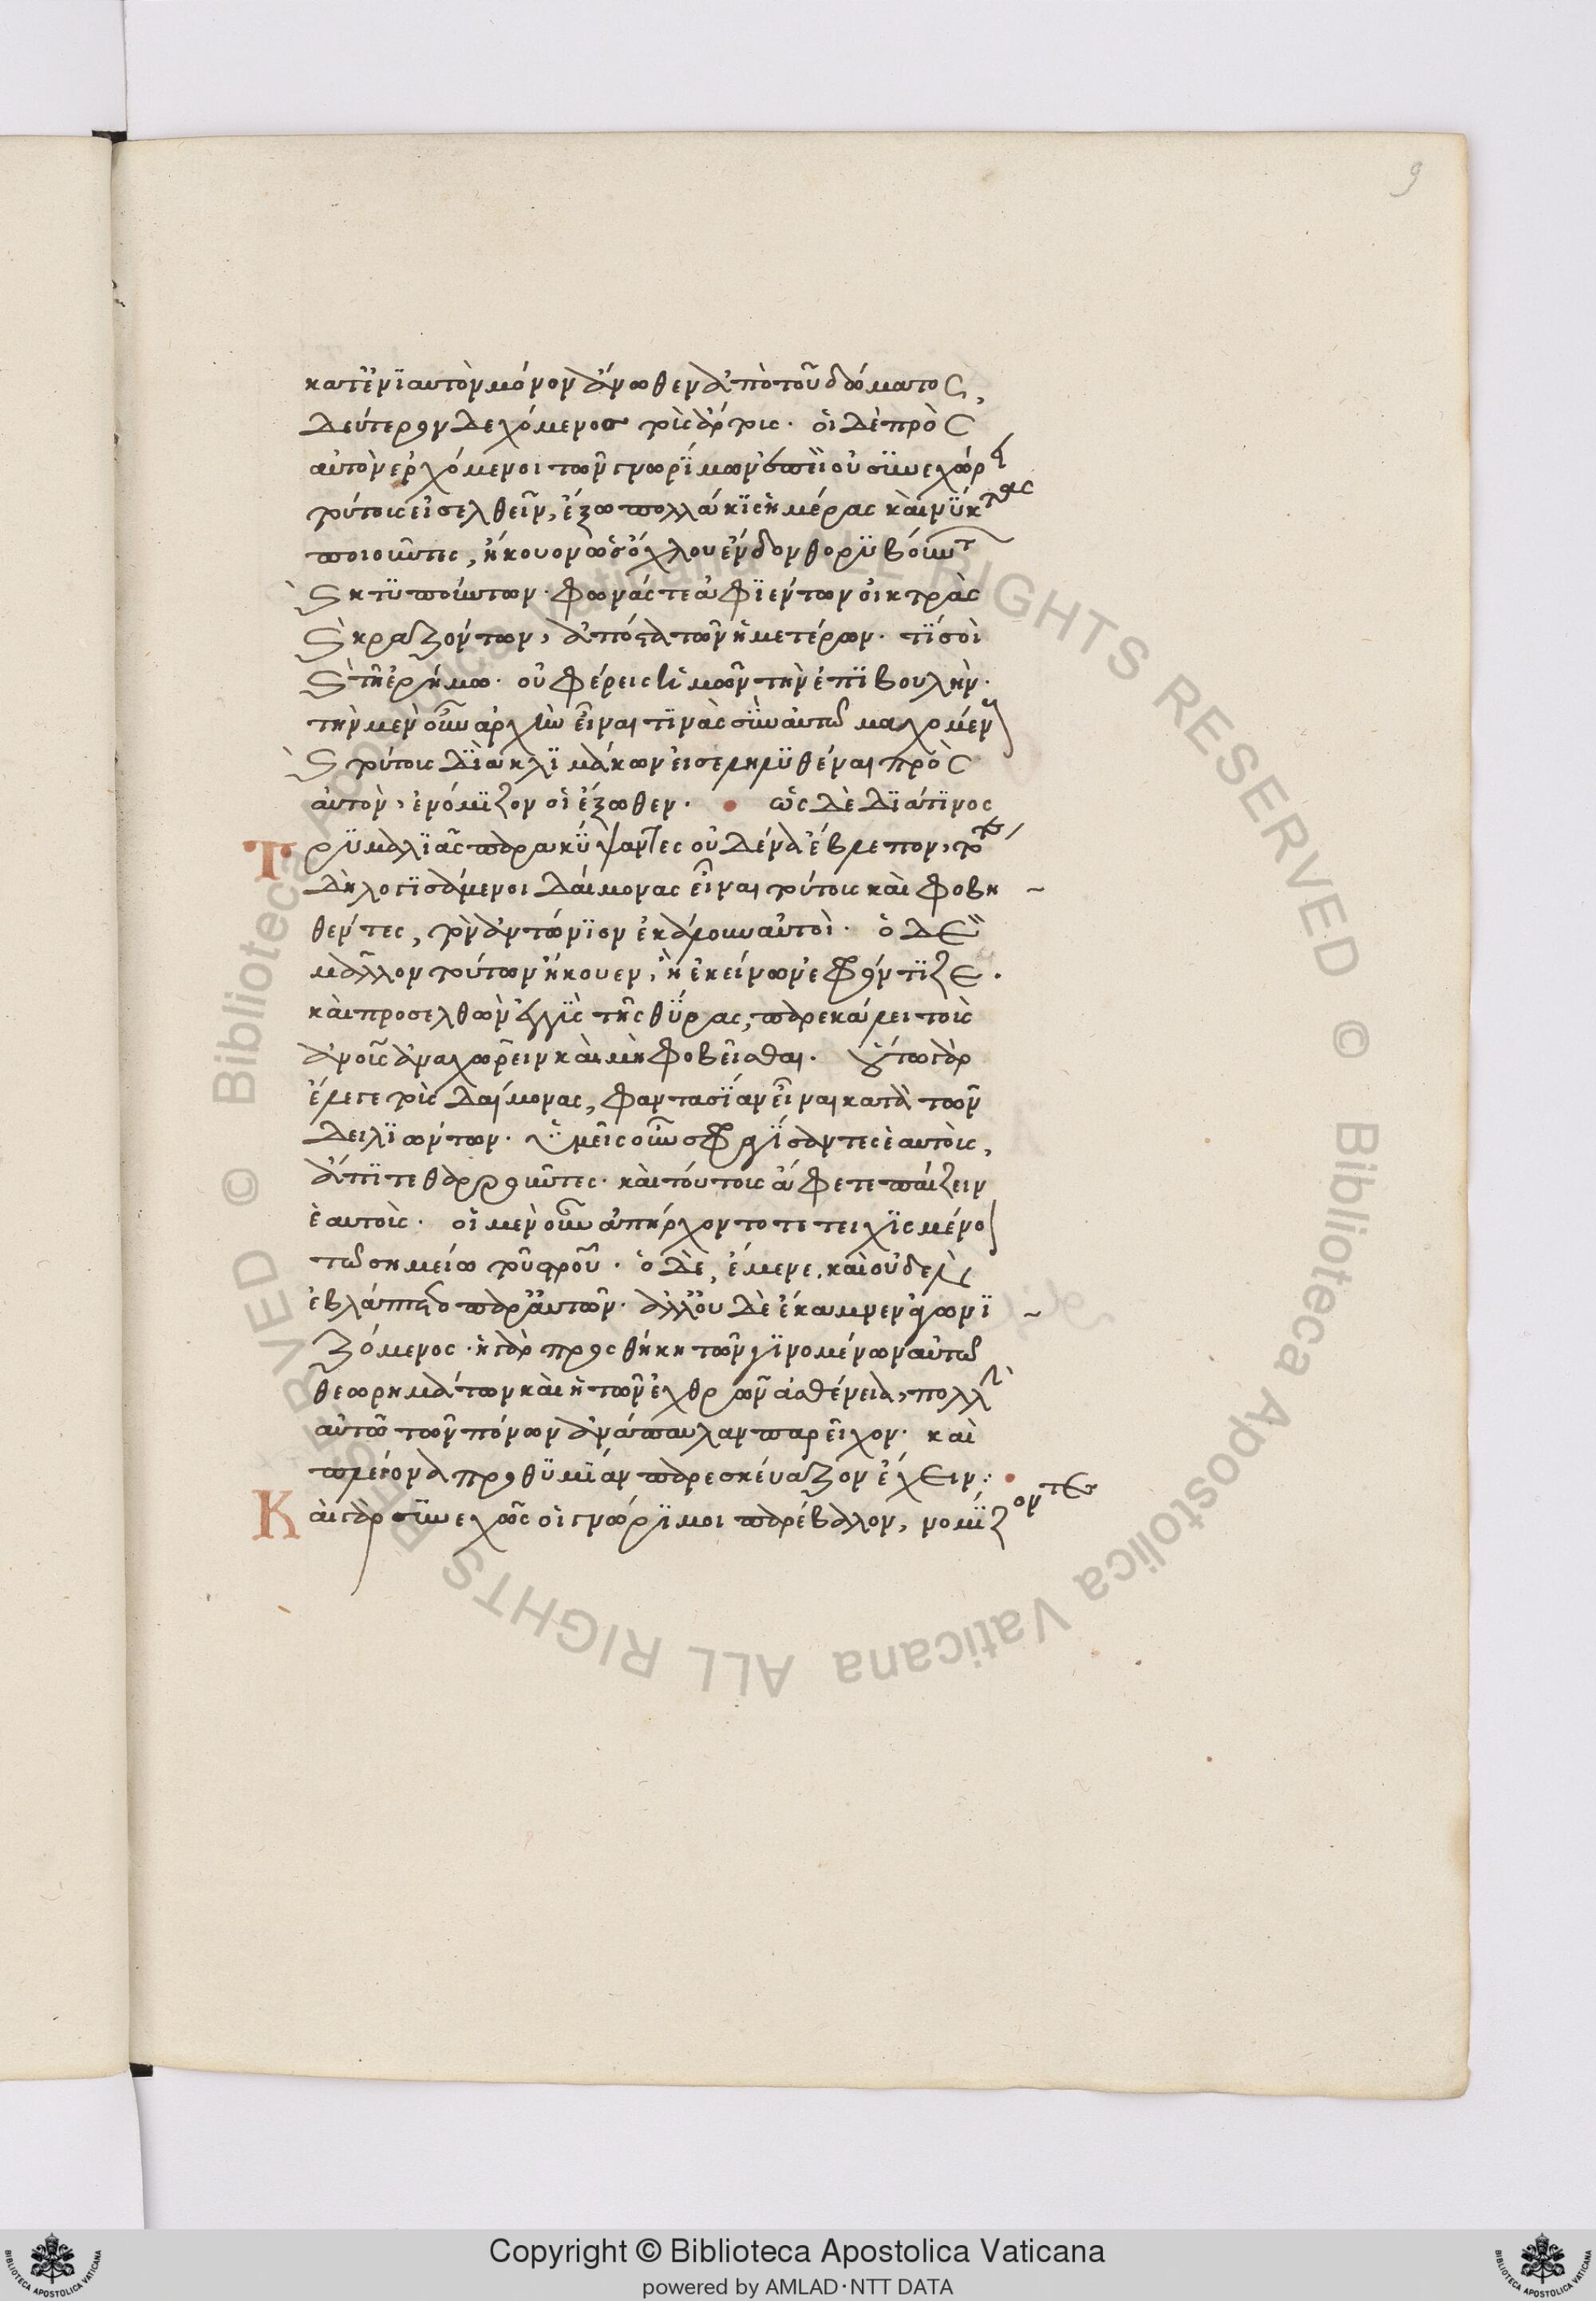 9
κατ' ἐνϊαυτὸν μόνον ἄνωθεν ἀπὸ τοῦ δώματος,
δεύτερον δεχόμενος τοὺς ἄρτους. οἱ δὲ πρὸς
αὐτὸν ἐρχόμενοι τῶν γνωρΐμων ἐπεὶ οὐ σϋνεχώρει
τούτοις εἰσελθεῖν, ἔξω πολλάκϊς ἡμέρας καὶ νύκτας
ποιοῦντες, ἤκουον ὡς ὄχλου ἔνδον θορϋβούντων
καὶ κτϋπούντων. φωνάς τε ἀφϊέντων οἰκτρὰς
καὶ κραζόντων, ἀπόστα τῶν ἡμετέρων. τΐ σοὶ
καὶ τῆ ἐρήμω. οὐ φέρεις ἡμῶν τὴν ἐπϊβουλήν.
τὴν μὲν οὖν ἀρχὴν εἶναι τϊνὰς σὺν αὐτῶ μαχομένους
καὶ τούτους δϊὰ κλϊμάκων εἰσεληλϋθέναι πρὸς
αὐτὸν, ἐνόμϊζον οἱ ἔξωθεν. ὡς δὲ δϊά τϊνος
τρϋμαλϊᾶς παρακΰψαντες οὐδένα ἔβλεπον, τότε
δὴ λογϊσάμενοι δαίμονας εἶναι τούτους καὶ φοβη
θέντες, τὸν ἀντώνϊον ἐκάλουν αὐτοὶ. ὁ δὲ
μᾶλλον τούτων ἤκουεν, ἢ ἐκείνων ἐφρόντϊζε.
καὶ προσελθὼν ἐγγὺς τῆς θΰρας, παρεκάλει τοὺς
ἀνους ἀναχωρεῖν καὶ μὴ φοβεῖσθαι. οὕτω γὰρ
ἔλεγε τοὺς δαίμονας, φαντασΐαν εἶναι κατὰ τῶν
δειλϊώντων. ὑμεῖς οὖν σφραγΐσαντες ἑαυτοὺς,
ἄπϊτε θαρροῦντες. καὶ τούτους ἄφετε παίζειν
ἑαυτοῖς. οἱ μὲν οὖν ἀπήρχοντο τετειχϊσμένοι
τῶ σημείω τοῦ σταυροῦ. ὁ δὲ, ἔμενε, καὶ οὐδὲν
ἐβλάπτετο παρ' αὐτῶν. ἀλλ' οὐδὲ ἔκαμνεν ἀγωνϊ
ζόμενος. ἡ γὰρ προσθήκη τῶν γϊνομένων αὐτῶ
θεωρημάτων καὶ ἡ τῶν ἐχθρῶν ἀσθένεια, πολλὴν
αὐτῶ τῶν πόνων ἀνάπαυλαν παρεῖχον. καὶ
πλείονα προθϋμΐαν παρεσκεύαζον ἔχειν.
Καὶ γὰρ σϋνεχῶς οἱ γνώρϊμοι παρέβαλλον, νομΐζοντες